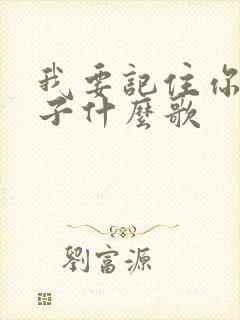 我要記住你
子什麼歌
劉富源